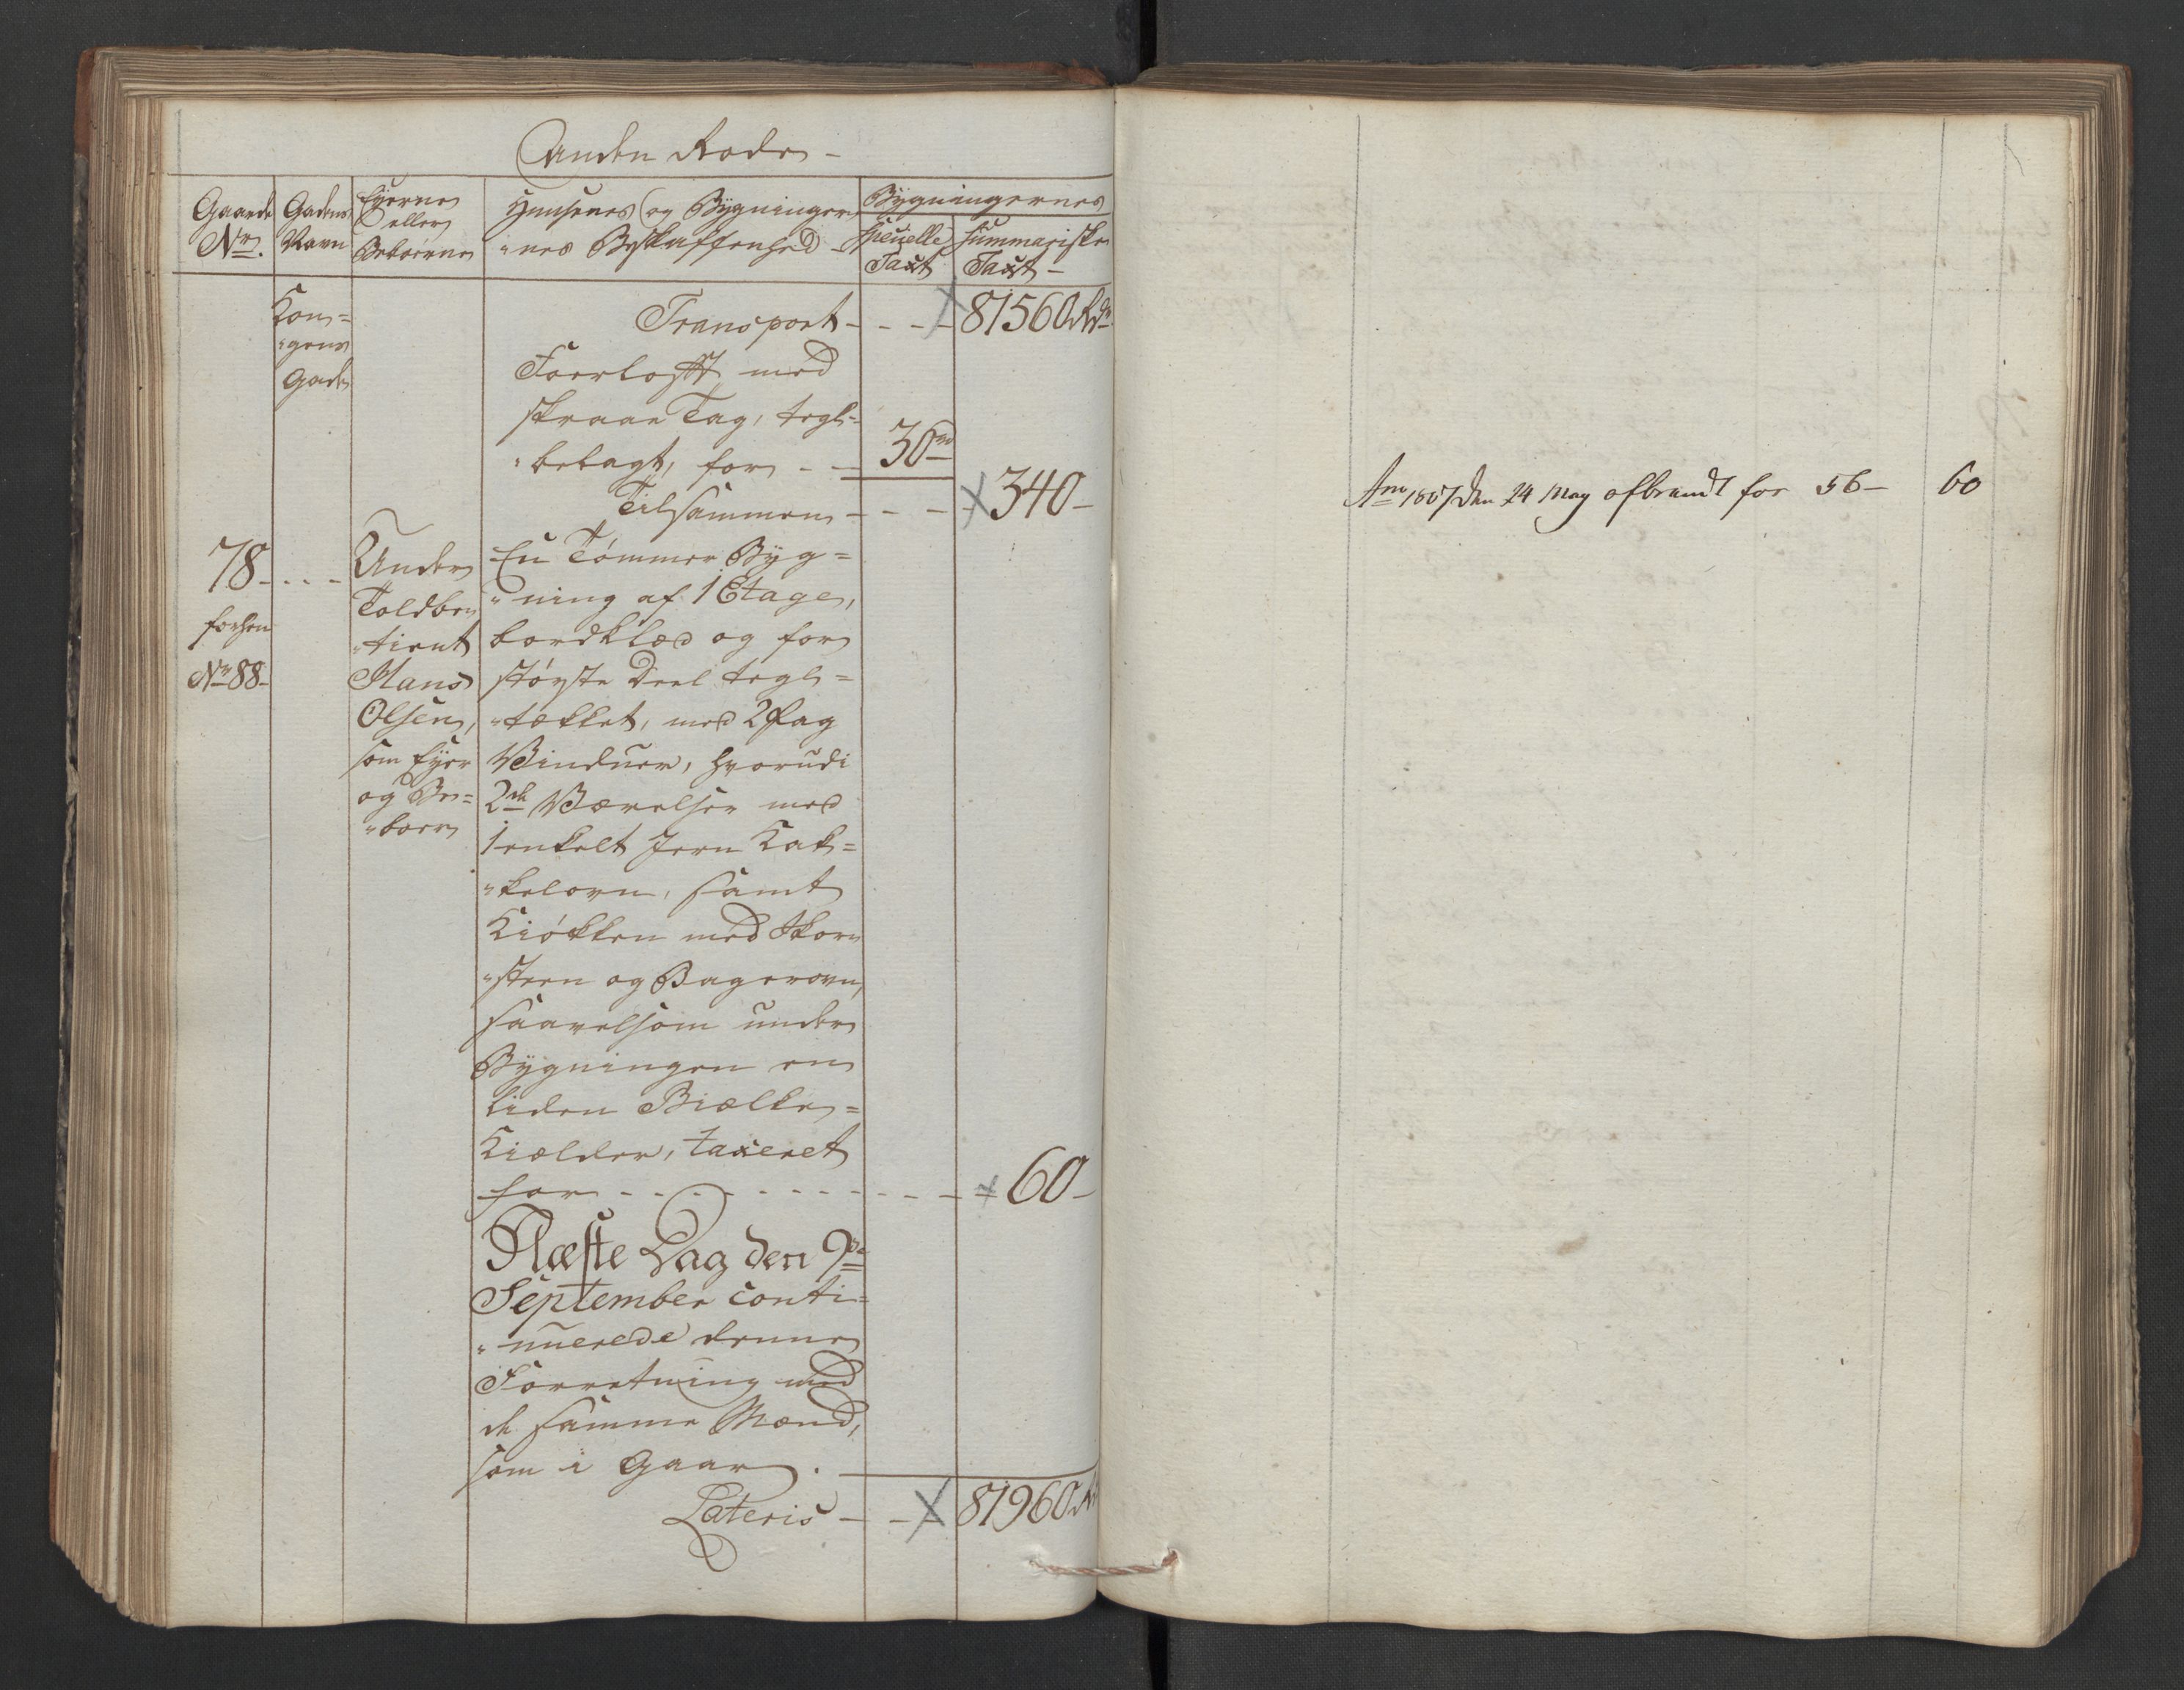 Anden Rode
Gaarde
No.
Gadens
Navn
Eyerne
eller
Beboerne
Huusenes og Bygninger
"nes Beskaffenhed
Bygningernes
Speuelle
Taxt
Summariske
Taxt
Kon=
"gens
Gade
Transport - - - 81560 Rdr
Foerloft med
skraae Tag, tegl=
"belagt, for - - 30
Tilsammen - - - 340 -
78 - - -
forhen
No 88 -
Under
Toldbe
"tient
Hans
Olsen,
som Eyer
og Be=
"boer
En Tömmer Byg=
"ning af 1 Etage,
bordklæd og for
störste Deel tegl=
"tækket, med 2 Fag
Vinduer, hvorudi
2de Værelser med
1 enkelt Jern Kak=
"kelovn, samt
Kiökken med Skor
"steen og Bagerovn,
saavelsom under
Bygningen en
liden Bielke=
Kielder, taxeret
for - - - - - - - - 60 -
Næste Dag den 9de
September conti=
"nuerede denne
Forretning med
de samme Mænd,
som i Gaar.
Lateris - - 81960 Rd
Ano 1807 den 24 May afbrendt for 56 - 60